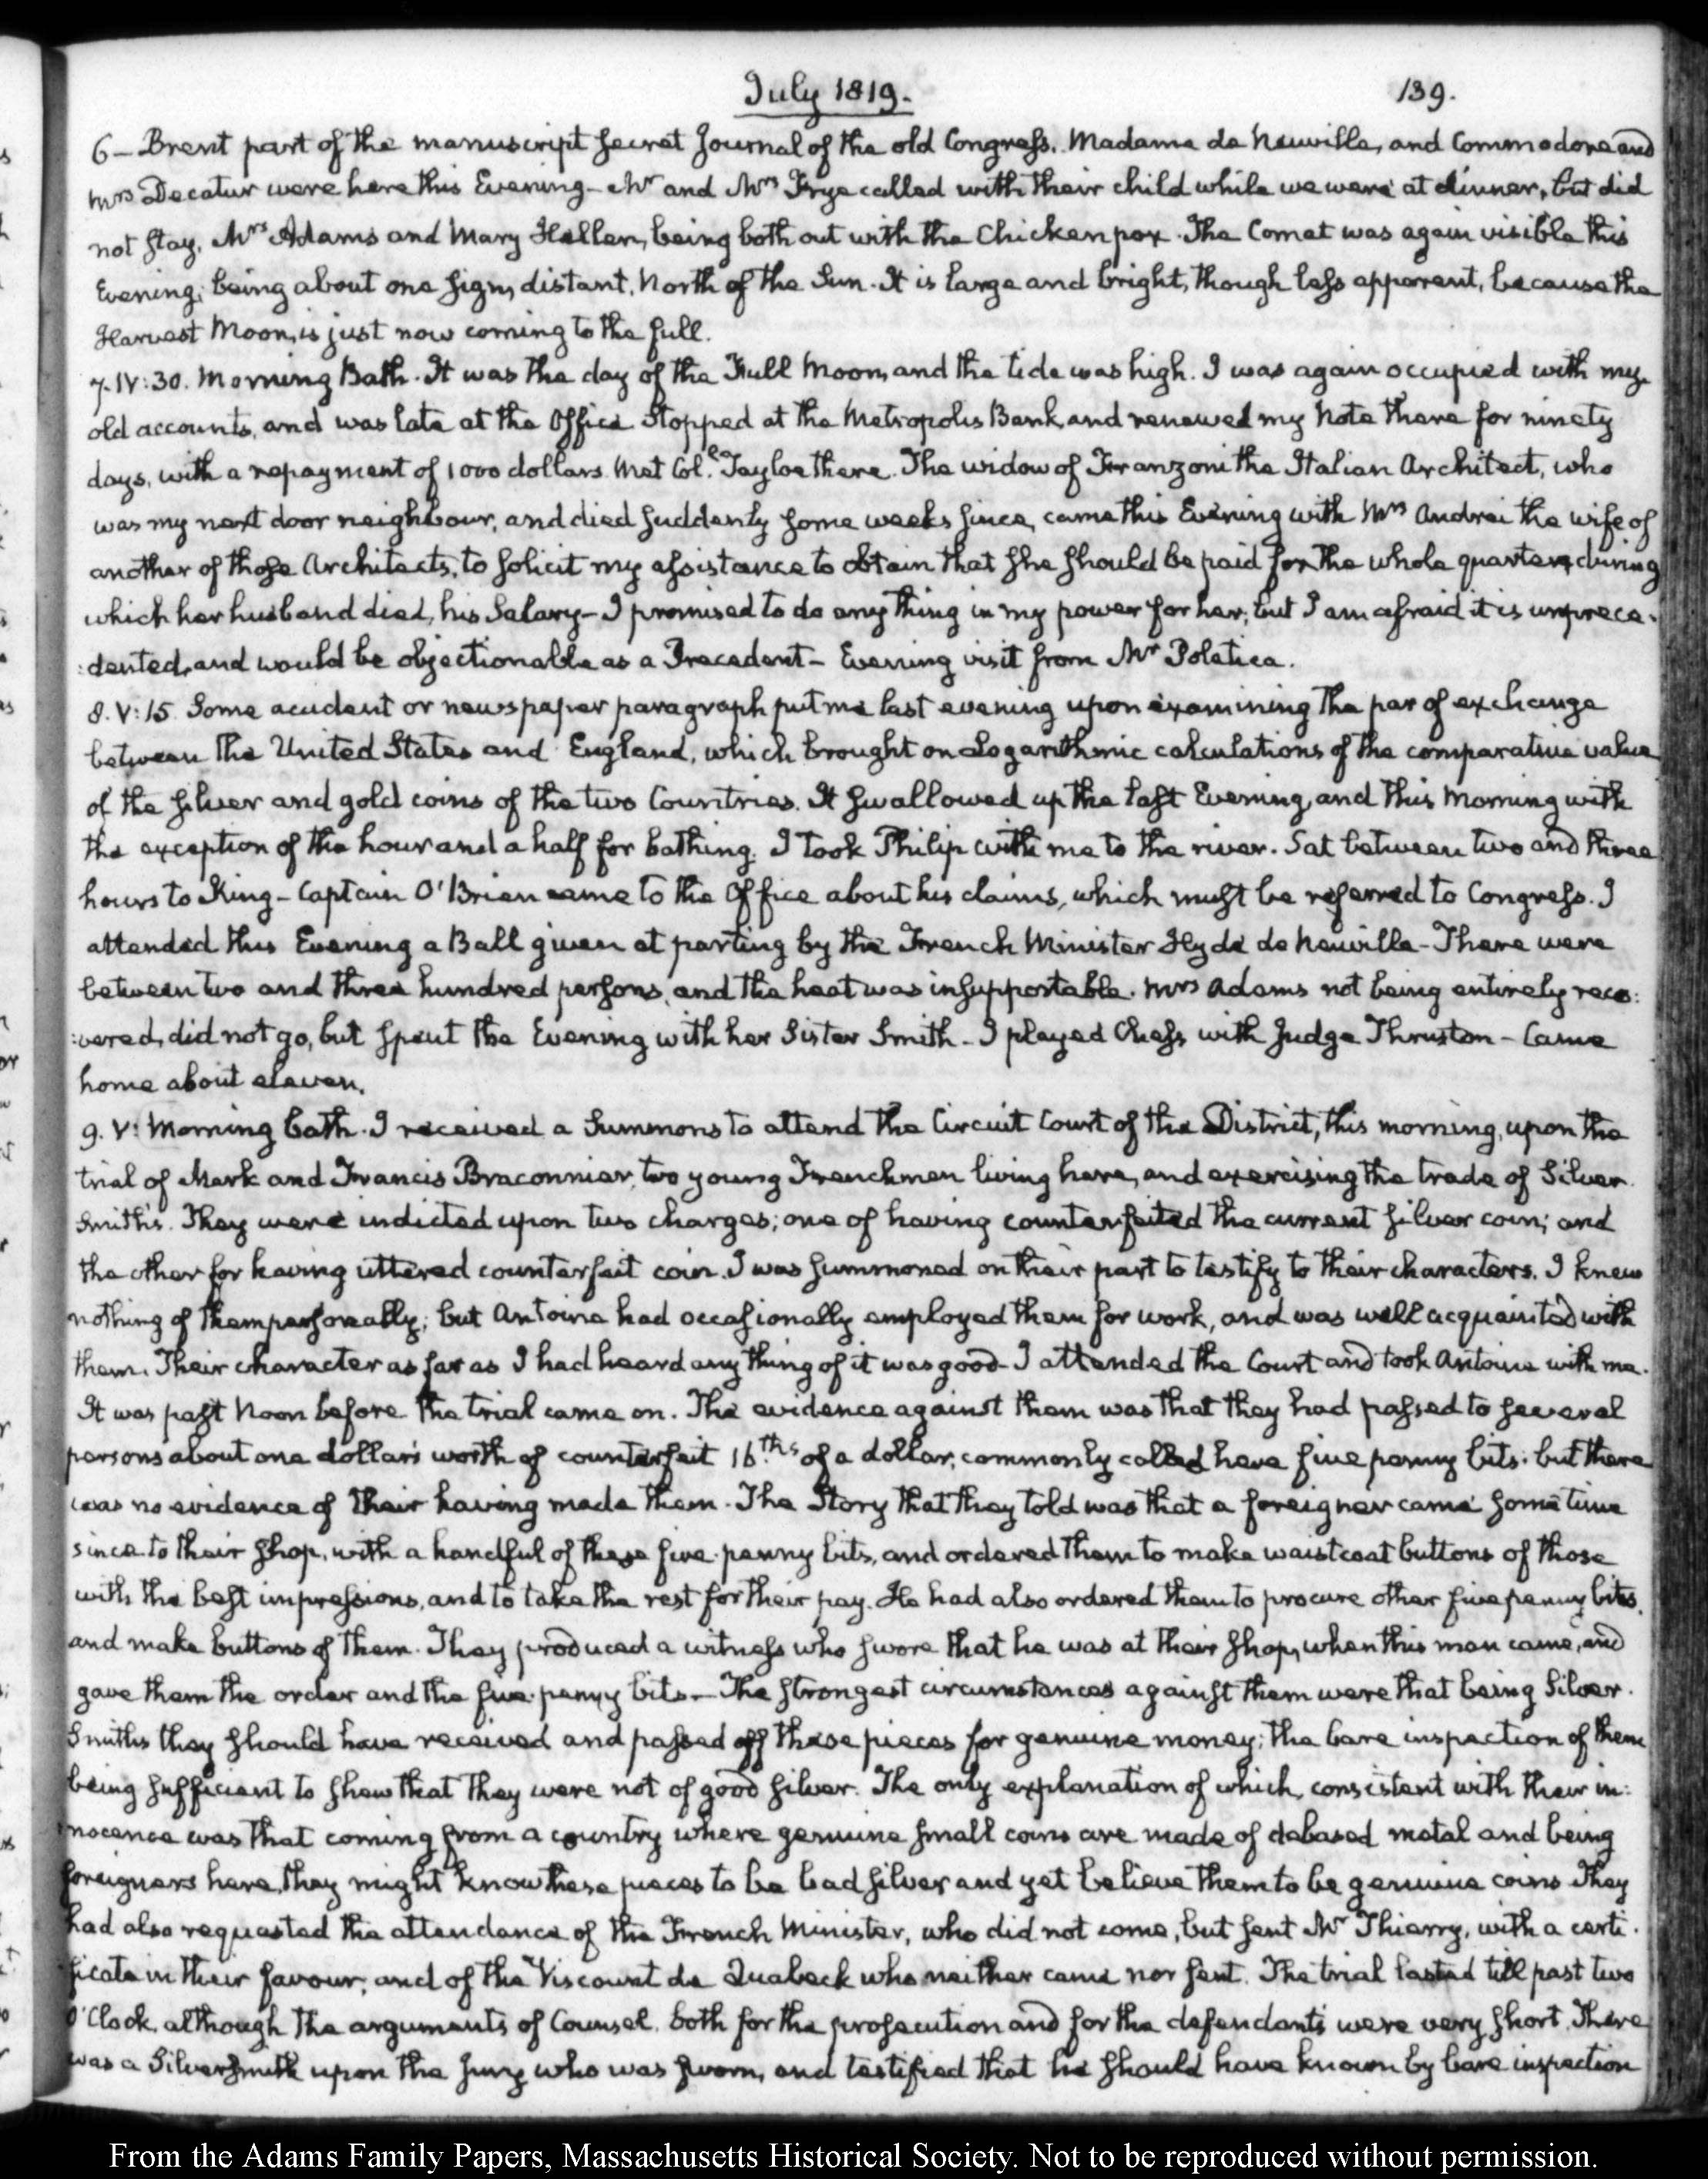 July 1819.
139.
6 – Brent part of the manuscript secret Journal of the old Congress. Madame de Neuville, and Commodore and
Mrs Decatur were here this Evening – Mr and Mrs Frye called with their child while we were at dinner, but did
not stay, Mrs Adams and Mary Hellen, being both out with the Chickenpox. The Comet was again visible this
Evening; being about one sign, distant, North of the Sun. It is large and bright, though less apparent, because the
Harvest Moon, is just now coming to the full.
7. IV:30. Morning Bath. It was the day of the Full Moon, and the tide was high. I was again occupied with my
old accounts, and was late at the Office. Stopped at the Metropolis Bank, and renewed my Note there for ninety
days, with a repayment of 1000 dollars. Met Col. Tayloe there. The widow of Franzoni the Italian Architect, who
was my next door neighbour, and died suddenly some weeks since, came this Evening with Mrs Andrei the wife of
another of those Architects, to solicit my assistance to obtain that she should be paid for the whole quarter, during
which her husband died, his Salary – I promised to do any thing in my power for her; but I am afraid it is unprece-
:dented, and would be objectionable as a Precedent – Evening visit from Mr Poletica.
8. V:15. Some accident or newspaper paragraph put me last evening upon examining the par of exchange
between the United States and England, which brought on Logarithmic calculations of the comparative value
of the silver and gold coins of the two Countries. It swallowed up the last Evening, and this Morning with
the exception of the hour and a half for bathing. I took Philip with me to the river. Sat between two and three
hours to King – Captain O'Brien came to the Office about his claims, which must be referred to Congress. I
attended this Evening a Ball given at parting by the French Minister Hyde de Neuville – There were
between two and three hundred persons, and the heat was insupportable. Mrs Adams not being entirely reco:
:vered, did not go, but spent the Evening with her Sister Smith – I played Chess with Judge Thruston – Came
home about eleven.
9. V: Morning bath. I received a Summons to attend the Circuit Court of the District, this morning, upon the
trial of Mark and Francis Braconnier, two young Frenchmen living here, and exercising the trade of Silver
Smiths. They were indicted upon two charges; one of having counterfeited the current silver coin; and
the other for having uttered counterfeit coin. I was summoned on their part to testify to their characters. I knew
nothing of them personally; but Antoine had occasionally employed them for work, and was well acquainted with
them. Their character as far as I had heard any thing of it was good – I attended the Court and took Antoine with me.
It was past Noon before the trial came on. The evidence against them was that they had passed to several
persons about one dollar's worth of counterfeit 16.ths of a dollar, commonly called here five penny bits: but there
was no evidence of their having made them. The Story that they told was that a foreigner came some time
since to their shop, with a handful of these five-penny bits, and ordered them to make waistcoat buttons of those
with the best impressions, and to take the rest for their pay. He had also ordered them to procure other five penny bits,
and make buttons of them. They produced a witness who swore that he was at their shop, when this man came, and
gave them the order and the five-penny bits – The strongest circumstances against them were that being Silver-
Smiths they should have received and passed off these pieces for genuine money; the bare inspection of them
being sufficient to show that they were not of good silver. The only explanation of which, consistent with their in:
nocence was that coming from a country where genuine small coins are made of debased metal and being
foreigners here, they might know these pieces to be bad silver and yet believe them to be genuine coins. They
had also requested the attendance of the French Minister, who did not come, but sent Mr Thierry, with a certi-
ficate in their favour; and of the Viscount de Quabeck who neither came nor sent. The trial lasted till past two
O'Clock, although the arguments of Counsel, both for the prosecution and for the defendants were very short. There
was a Silversmith upon the Jury who was sworn, and testified that he should have known by bare inspection
From the Adams Family Papers, Massachusetts Historical Society. Not to be reproduced without permission.